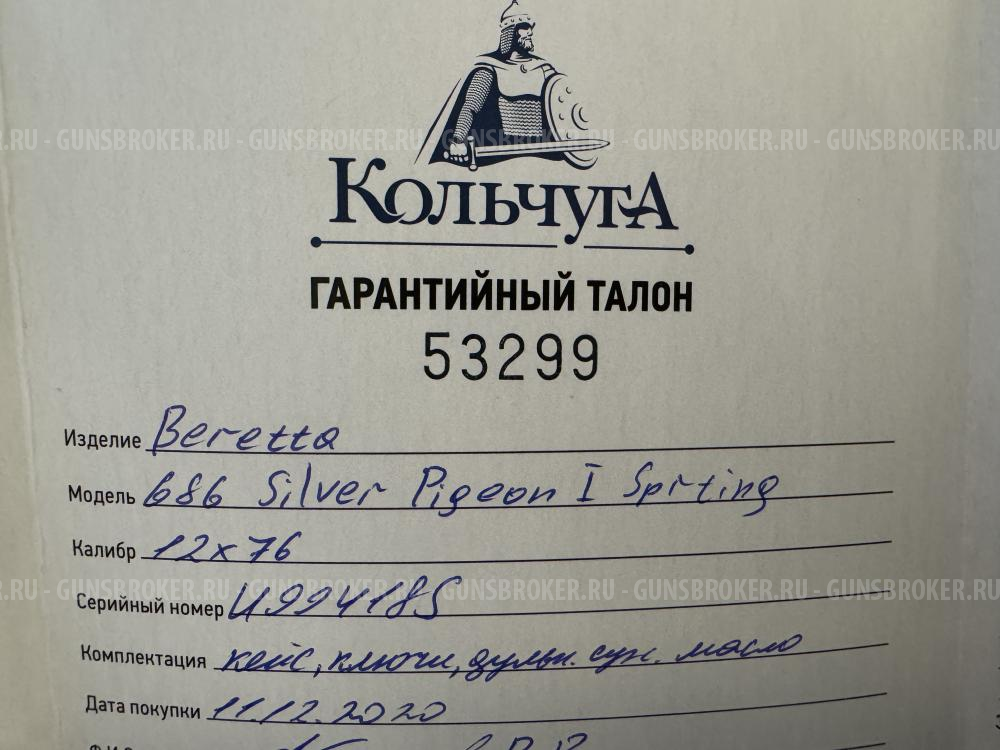 КОЛЬЧУГА
.RU - GUNSBROKER.RU - GUNSBROKER.RU - GUNSBROKER.RU - GUNSBROKER.RU - GUNSBROKER.RU
ГАРАНТИЙНЫЙ ТАЛОН
53299
Изделие Beretta
Модель 686 Silver Pigeon I Sprting
Калибр 12x76
.RU - GUNSBROKER.RU - GUNSBROKER.RU - GUNSBROKER.RU - GUNSBROKER.RU - GUNSBROKER.RU
Серийный номер U99418S
Комплектация кейс, ключи, дульн. суж. масло
Дата покупки 11.12.2020